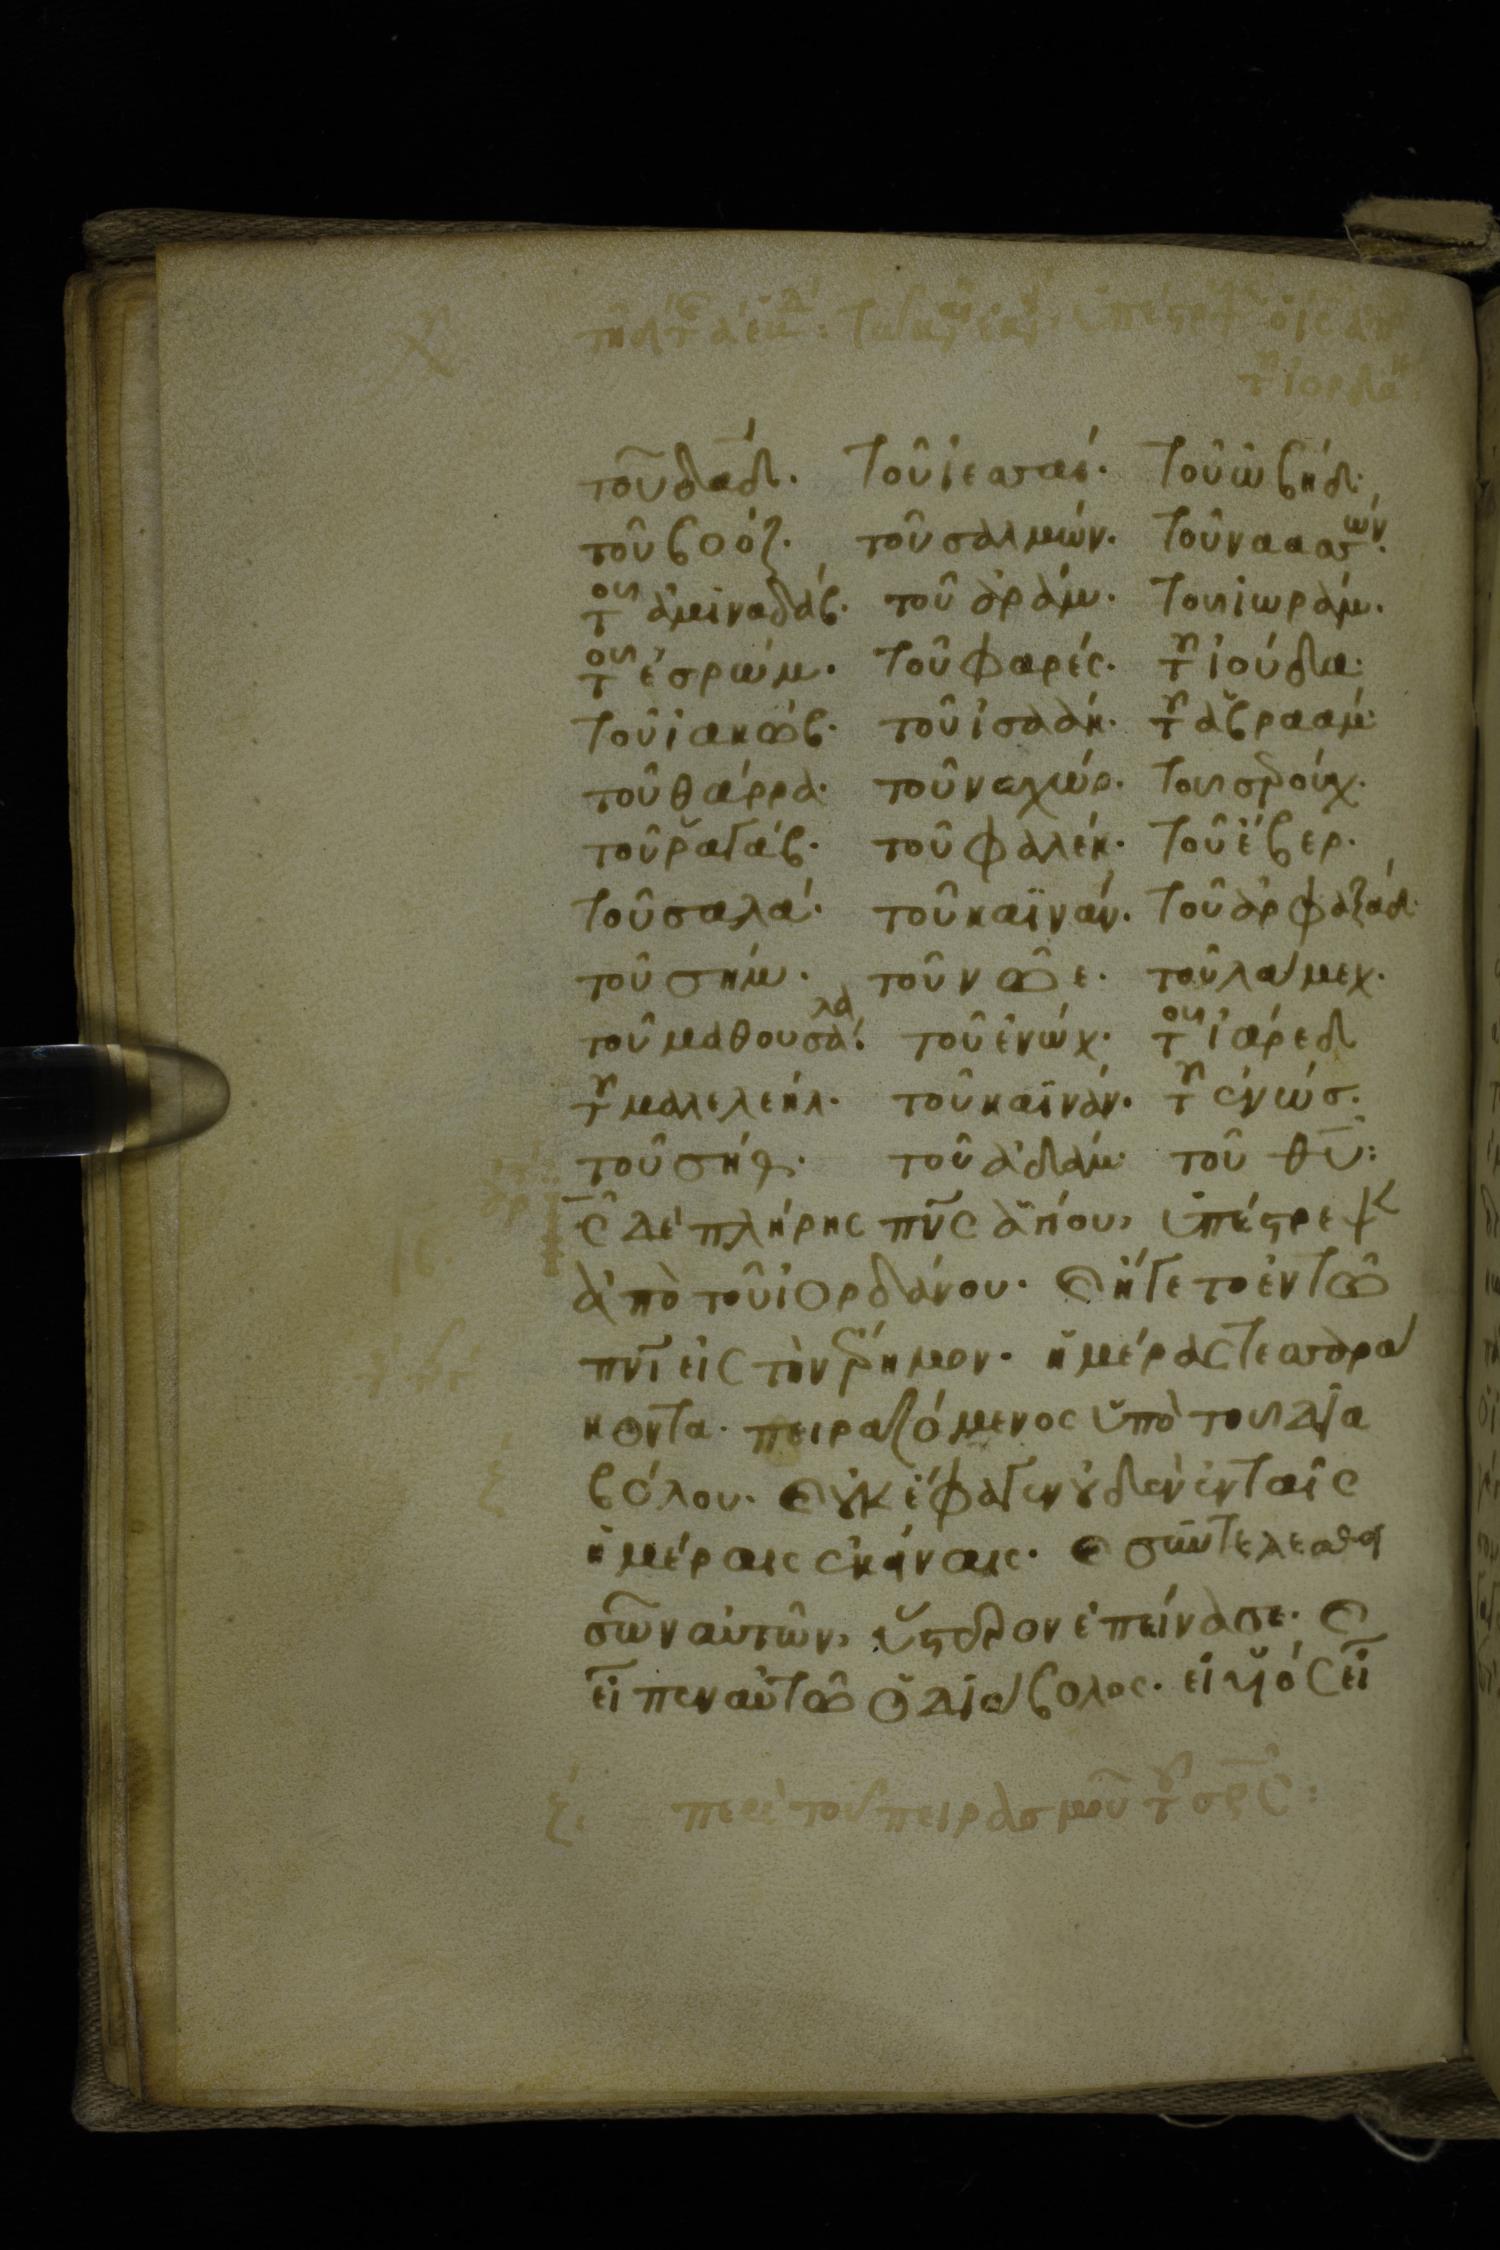 τοῦ δαδ. τοῦ ἰεσσαί. τοῦ ὠβήδ.
τοῦ βοόζ. τοῦ σαλμών. τοῦ ναασσών.
τοῦ ἀμιναδάβ. τοῦ ἀράμ. τοῦ ἰωράμ.
τοῦ ἐσρώμ. τοῦ φαρές. τοῦ ἰούδα.
τοῦ ἰακώβ. τοῦ ἰσαάκ. τοῦ ἀβραάμ.
τοῦ θάρρα. τοῦ ναχώρ. τοῦ σερούχ.
τοῦ ῥαγάβ. τοῦ φαλέκ. τοῦ ἔβερ.
τοῦ σαλά. τοῦ καϊνάν. τοῦ ἀρφαξάδ.
τοῦ σήμ. τοῦ νῶε. τοῦ λάμεχ.
τοῦ μαθουσάλα. τοῦ ἐνώχ. τοῦ ἰάρεδ
τοῦ μαλελεήλ. τοῦ καϊνάν. τοῦ ἐνώσ.
τοῦ σήθ. τοῦ ἀδάμ. τοῦ θυ:
ις δὲ πλήρης πνς ἁγίου, ὑπέστρεψεν
ἀπὸ τοῦ ἰορδάνου. καὶ ἤγετο ἐν τῶ
πνι εἰς τὴν ἔρημον. ἡμέρας τεσσαρά
κοντα. πειραζόμενος ὑπὸ τοῦ δια
βόλου. καὶ οὐκ ἔφαγεν οὐδὲν ἐν ταῖς
ἡμέραις ἐκείναις. καὶ συντελεσθει
σῶν αὐτῶν, ὕστερον ἐπείνασε. καὶ
εἶπεν αὐτῶ ὁ διάβολος. εἰ υἱὸς εἶ
ζ. περὶ τοῦ πειρασμοῦ τοῦ σρς: